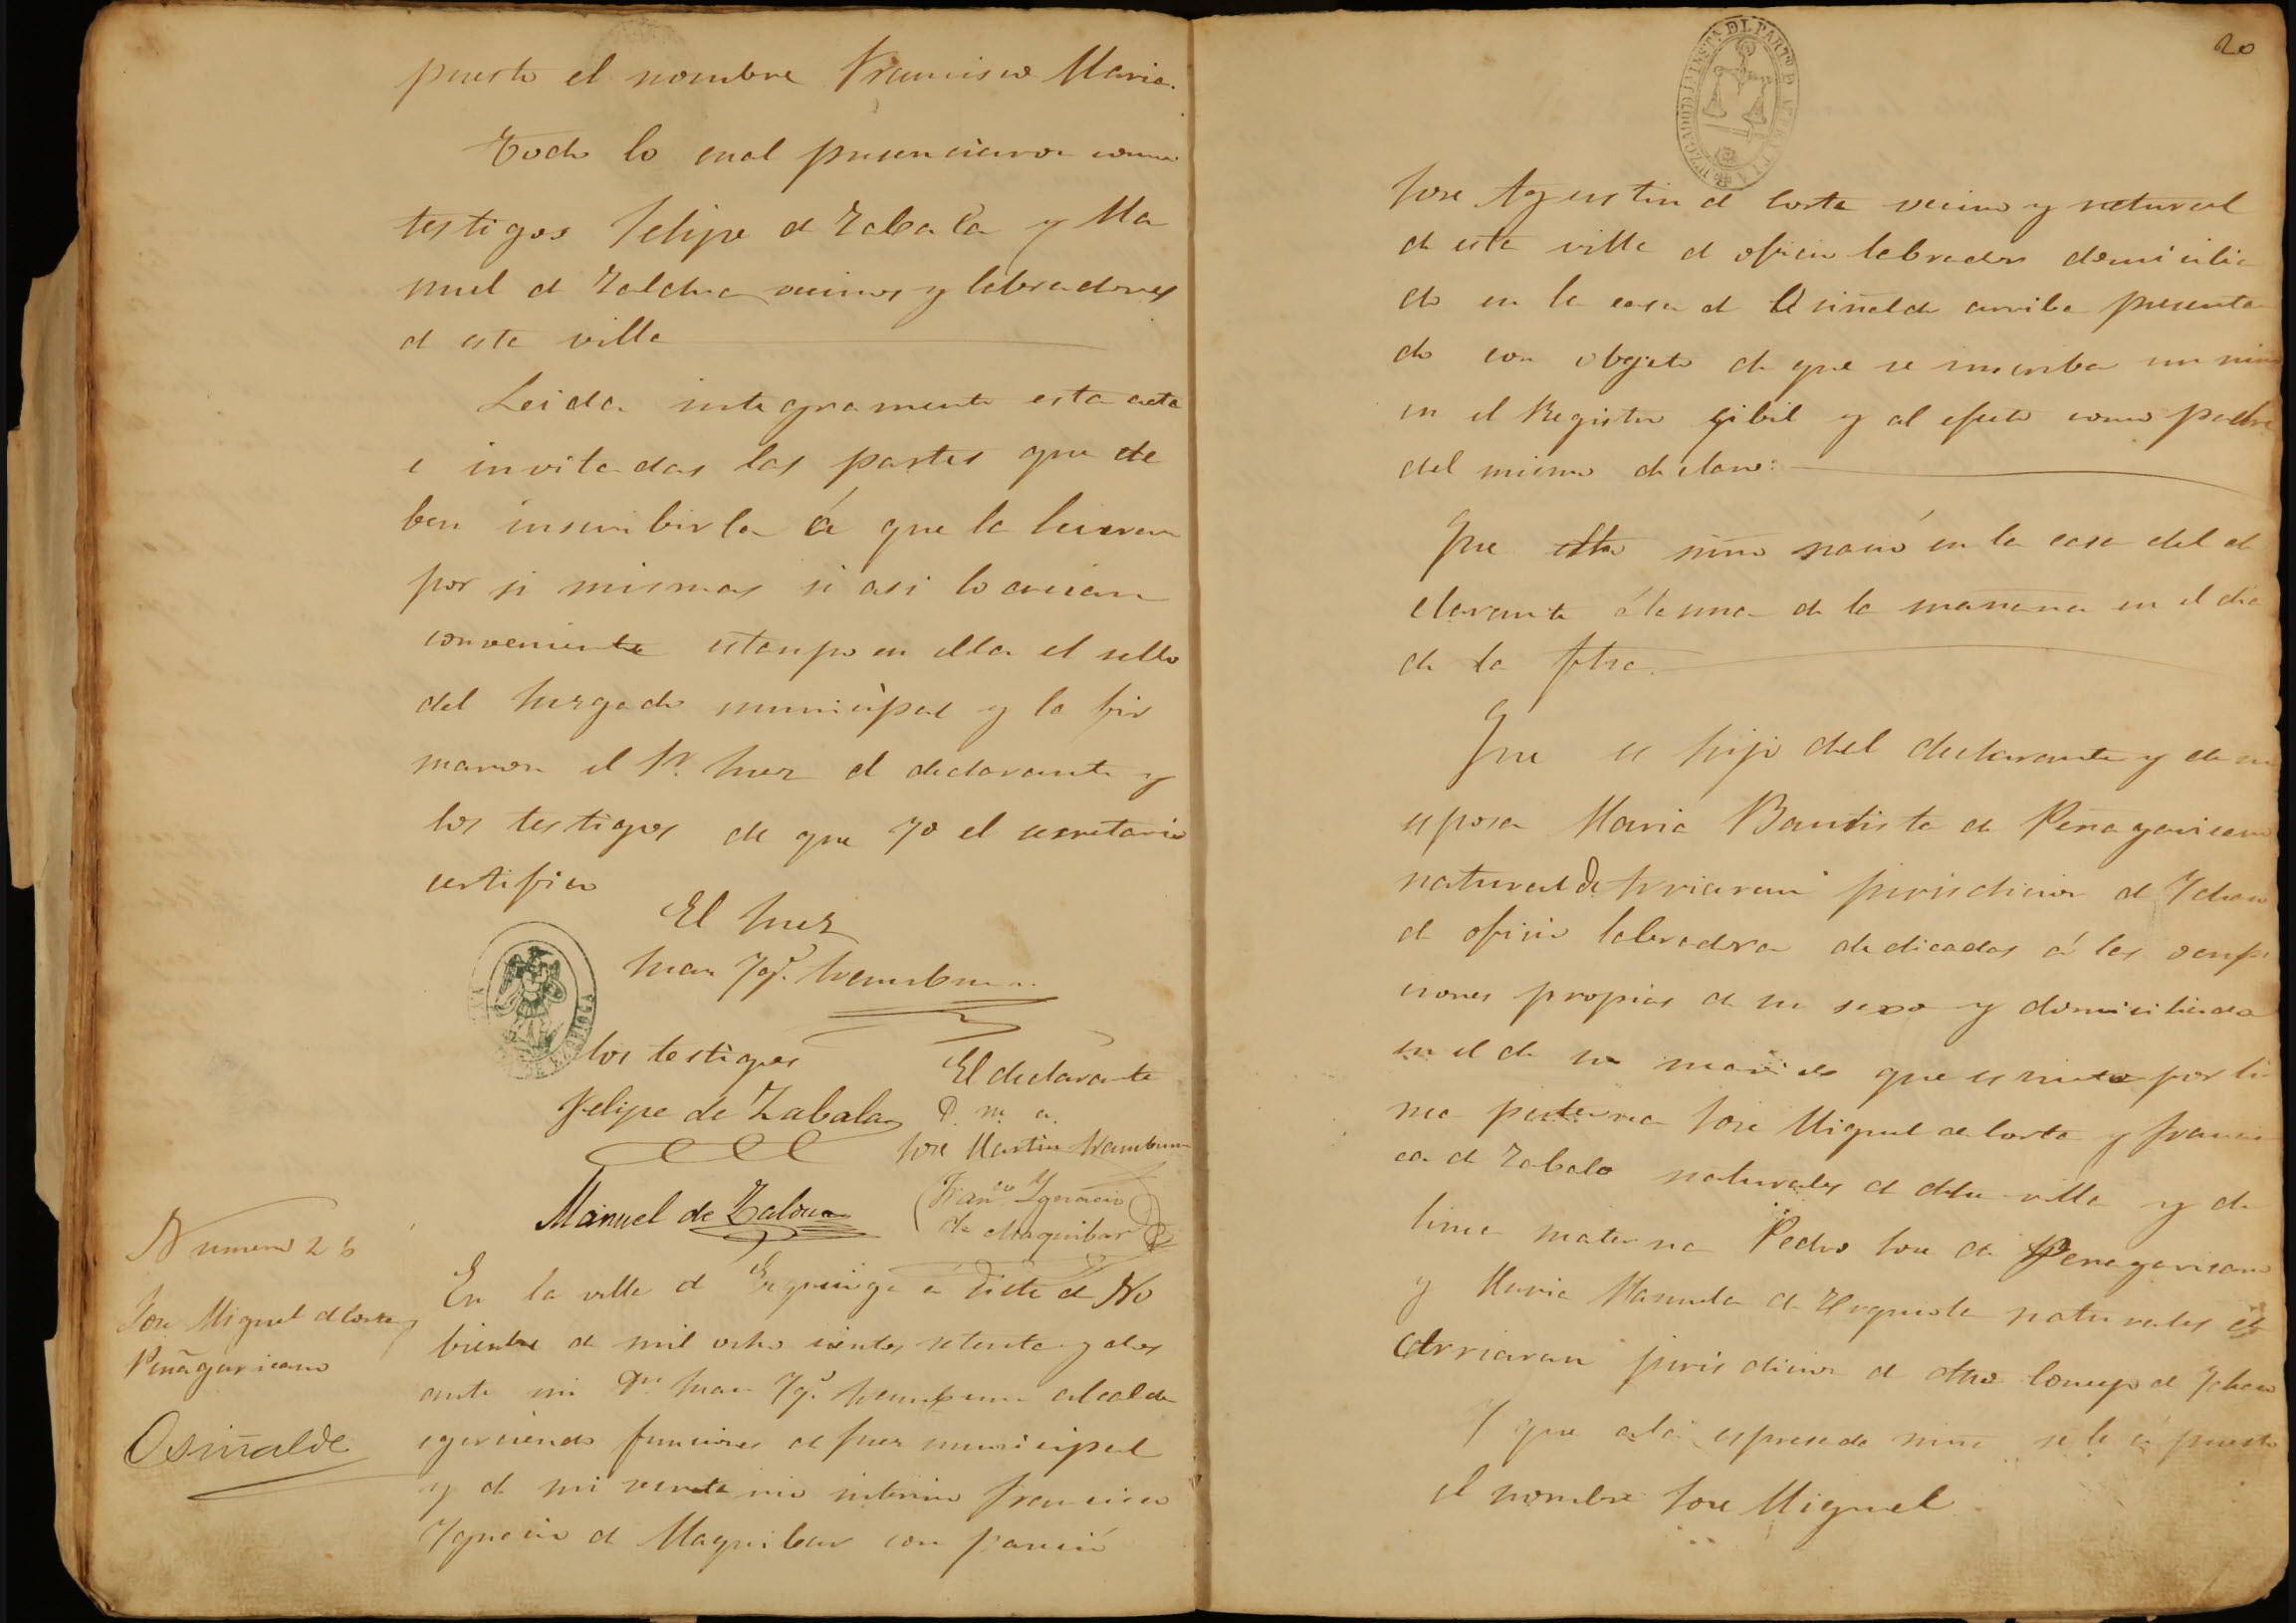 puesto el nombre Francisco Maria.
Todo lo cual presenciaron como
testigos Felipe d Zabala y Ma
nuel d Zaldua vecinos y labradores
d esta villa
Leida integramente esta acta
e invitadas las partes que de
ben inscribirla á que la leieran
por si mismas si asi lo creian
conveniente estanpo en ella el sello
del Jurgado municipal y la fir
maron el Sr. Juez el declarante y
los testigos de que yo el secretario
certifico
El Juez
Juan Ygo.
los testigos
El declarante
Felipe de Zabala
P. m. a.
Jose Martin
Franco Ygnacio
de Maquibar
Manuel de Zaldua
Numero 26
Jose Miguel d Corta y
Peñagaricano
Osinalde
En la villa d a siete d No
biembre de mil ocho cientos setenta y dos
ante mi Dn Juan Ygo. alcalde
egerciendo funciones de juez municipal
y d mi secretario interino Francisco
Ygnacio d Maquibar con pareció
20
JUZGADO D 1A INSTA DEL PARTO D AZPEITIA
Jose Agustin d Corta vecino y natural
de esta villa d oficio labrador domicilia
do en la casa d Osinalde arriba presenta
do con objeto de que se inscriba un niño
en el Registro cibil y al efecto como padre
del mismo declaro:
Que dho niño nació en la casa del de
clarante á la una de la mañana en el dia
de la fcha.
Que es hijo del declarante y de su
esposa Maria Bautista de Peñagaricano
natural de Arriaran jurisdicion d Ychaso
d oficio labradora dedicadas á las ocupa
ciones propias de su sexo y domiciliada
en el de su marido que es nieto por li
nea paterna Jose Miguel de Corta y Francis
ca d Zabala naturales d dcha villa y de
linea materna Pedro Jose de Penagaricano
y Maria Manuela de Urquiola naturales de
Arriaran jurisdicion d dho Concejo d Ychaso
Y que al espresado niño se le á puesto
el nombre Jose Miguel